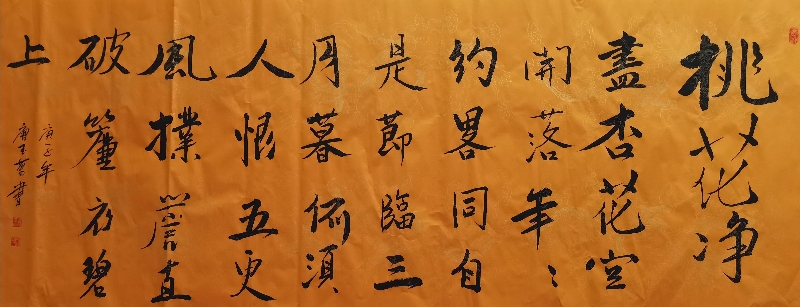 桃花净
盡杏花空
開落年〻
約畧同自
是節臨三
月暮何須
人恨五更
風撲簷直
破簾衣碧
上